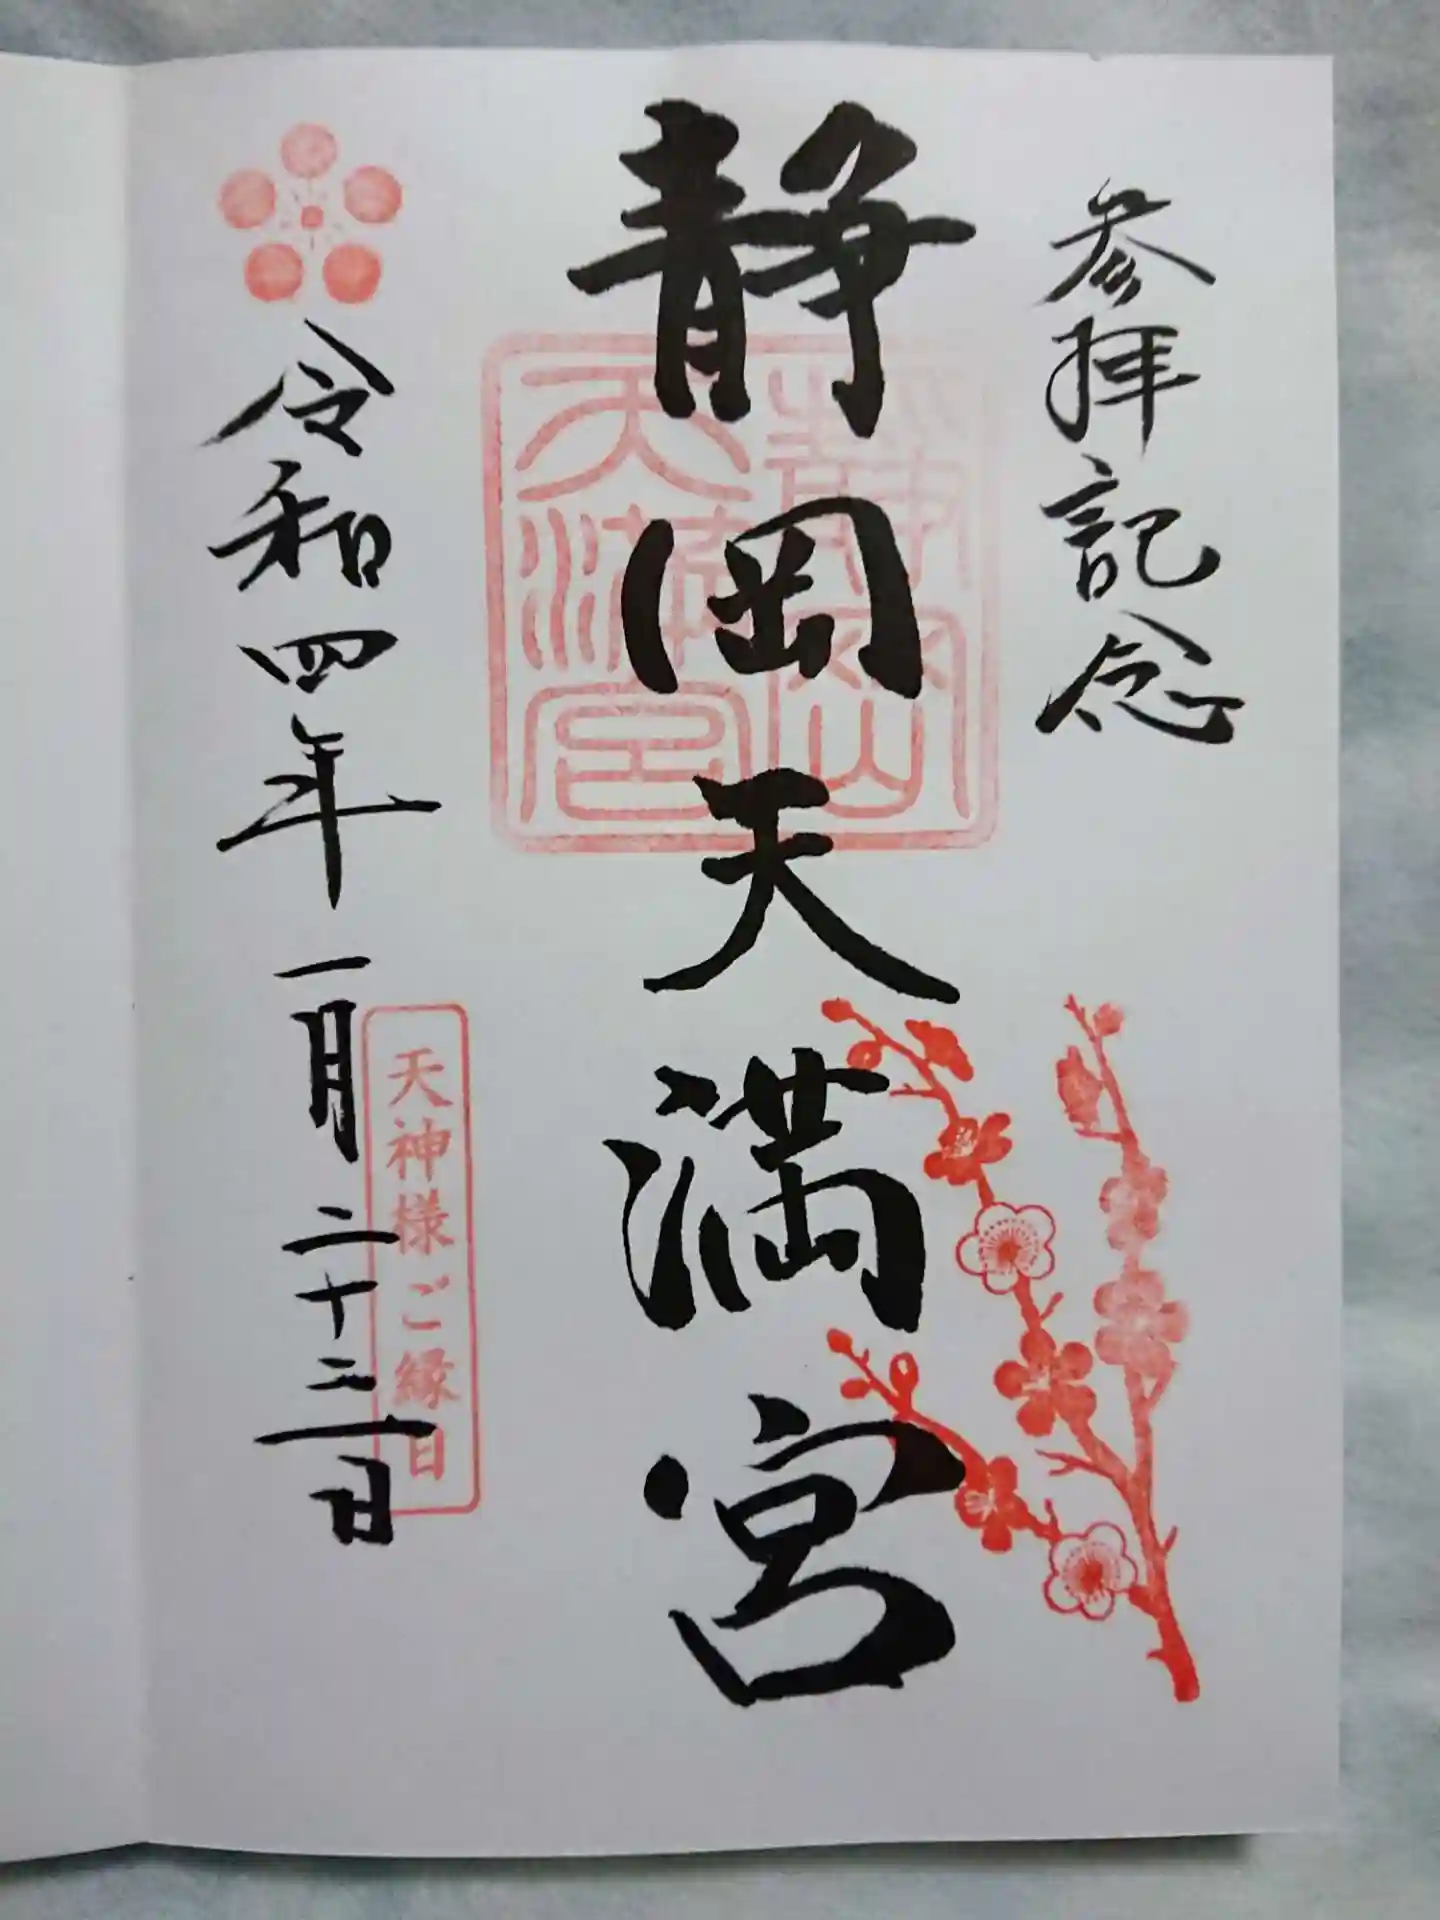 参拝記念
静岡天満宮
静岡
天満宮
令和四年一月二十三日
天神様ご縁日